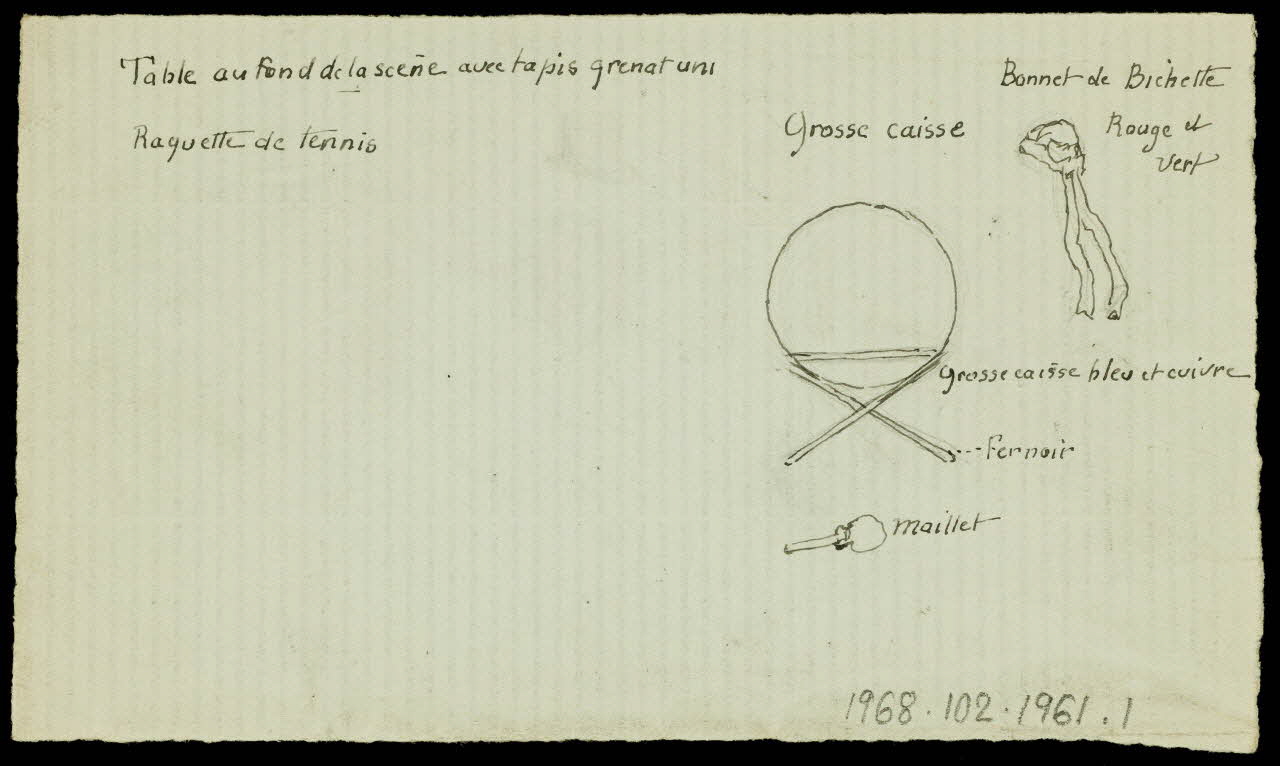 Table au fond de la scène avec tapis grenat uni
Raquette de tennis
Grosse caisse
Bonnet de Bichette
Rouge et
vert
Grosse caisse bleu et cuivre
Fer noir
maillet
1968.102.1961.1